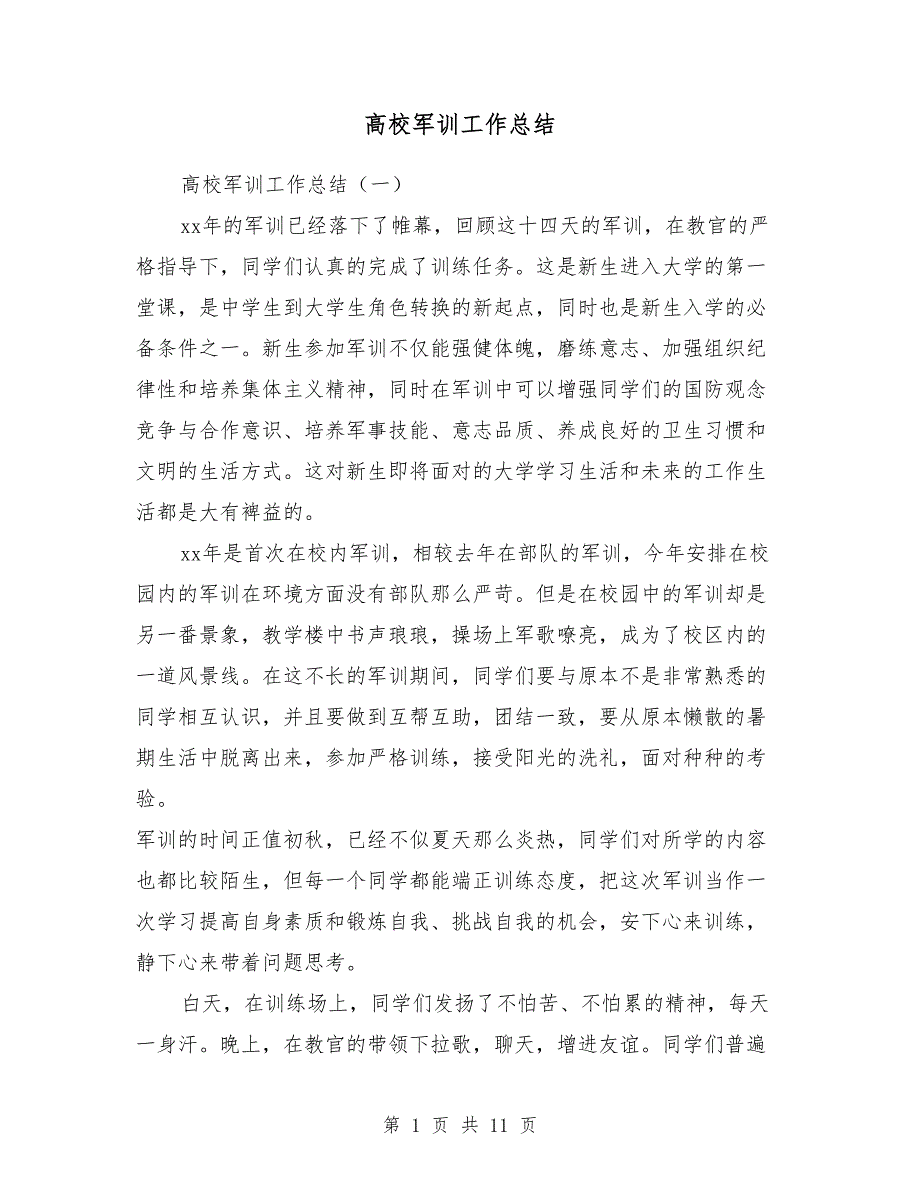 高校军训工作总结
高校军训工作总结（一）
xx年的军训已经落下了帷幕，回顾这十四天的军训，在教官的严
格指导下，同学们认真的完成了训练任务。这是新生进入大学的第一
堂课，是中学生到大学生角色转换的新起点，同时也是新生入学的必
备条件之一。新生参加军训不仅能强健体魄，磨练意志、加强组织纪
律性和培养集体主义精神，同时在军训中可以增强同学们的国防观念
竞争与合作意识、培养军事技能、意志品质、养成良好的卫生习惯和
文明的生活方式。这对新生即将面对的大学学习生活和未来的工作生
活都是大有裨益的。
xx年是首次在校内军训，相较去年在部队的军训，今年安排在校
园内的军训在环境方面没有部队那么严苛。但是在校园中的军训却是
另一番景象，教学楼中书声琅琅，操场上军歌嘹亮，成为了校区内的
一道风景线。在这不长的军训期间，同学们要与原本不是非常熟悉的
同学相互认识，并且要做到互帮互助，团结一致，要从原本懒散的暑
期生活中脱离出来，参加严格训练，接受阳光的洗礼，面对种种的考
验。
军训的时间正值初秋，已经不似夏天那么炎热，同学们对所学的内容
也都比较陌生，但每一个同学都能端正训练态度，把这次军训当作一
次学习提高自身素质和锻炼自我、挑战自我的机会，安下心来训练，
静下心来带着问题思考。
白天，在训练场上，同学们发扬了不怕苦、不怕累的精神，每天
一身汗。晚上，在教官的带领下拉歌，聊天，增进友谊。同学们普遍
第 1 页 共 11 页